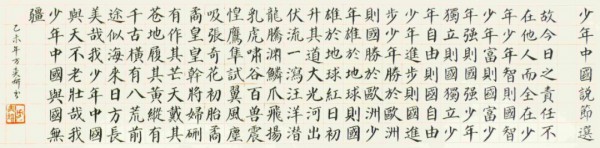 少年中國說節選
故今日之責任不
在他人而全在少
年少年智則國智
少年富則國富少
年強則國強少年
獨立則國獨立少
年自由則國自由
少年進步則國進
步少年勝於歐洲
則國勝於歐洲少
年雄於地球則國
雄於地球紅日初
升其道大光河出
伏流一瀉汪洋潛
龍騰淵鱗爪飛揚
乳虎嘯谷百獸震
惶鷹隼試翼風塵
吸張奇花初胎矞
矞皇皇幹將發硎
有作其芒天戴其
蒼地履其黃縱有
千古橫有八荒前
途似海來日方長
美哉我少年中國
與天不老壯哉我
少年中國與國無
疆
乙未年方